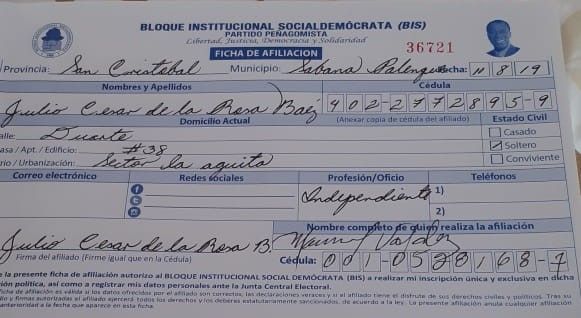 BLOQUE INSTITUCIONAL SOCIALDEMÓCRATA (BIS)
PARTIDO PEÑAGOMISTA
Libertad, Justicia, Democracia y Solidaridad
FICHA DE AFILIACION 36721
Provincia: San Cristobal Municipio: Sabana Palenque Fecha: 11 8 19
Nombres y Apellidos Cédula
Julio Cesar de la Rosa Baéz 402-2772895-9
Domicilio Actual (Anexar copia de cédula del afiliado) Estado Civil
alle: Duarte Casado
asa / Apt. / Edificio: #38 Soltero
rio / Urbanización: Sector la aguita Conviviente
Correo electrónico Redes sociales Profesión/Oficio Teléfonos
Independiente 1)
2)
Nombre completo de quien realiza la afiliación
Julio Cesar de la Rosa B.
Firma del afiliado (Firme igual que en la Cédula) Cédula: 001-0528168-7
e la presente ficha de afiliación autorizo al BLOQUE INSTITUCIONAL SOCIAL DEMÓCRATA (BIS) a realizar mi inscripción única y exclusiva en dicha
ión política, así como a registrar mis datos personales ante la Junta Central Electoral.
ficha de afiliación es válida si los datos ofrecidos por el afiliado son correctos, las declaraciones veraces y si el afiliado tiene el disfrute de sus derechos civiles y políticos. Tras su
do y firmas autorizadas el afiliado ejercerá todos los derechos y los deberes estatutariamente sancionados, de acuerdo a la ley. La presente afiliación anula cualquier afiliación
anterioridad a la fecha que aparece en esta ficha.